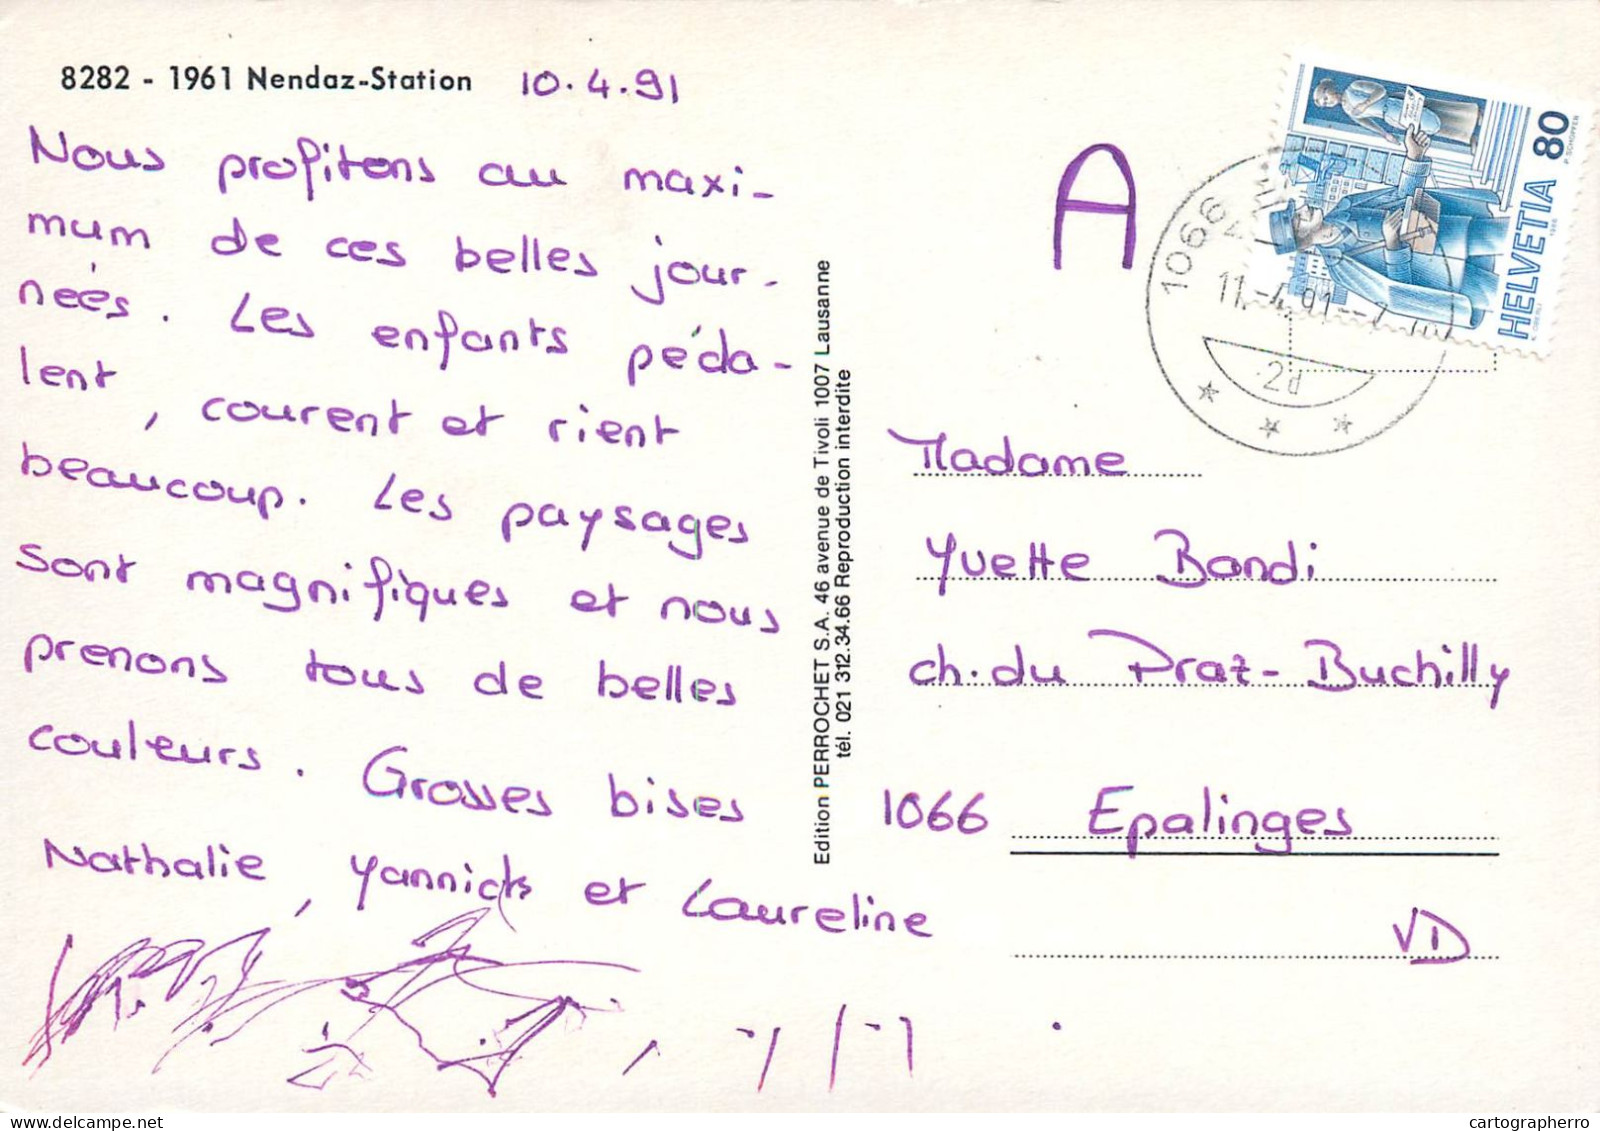 8282 - 1961 Nendaz-Station
10.4.91
Nous profitons au maxi-
mum de ces belles jour-
nées. Les enfants péda-
lent, courent et rient
beaucoup. Les paysages
sont magnifiques et nous
prenons tous de belles
couleurs. Grosses bises
Nathalie, Yannick et Laureline
Edition PERROCHET S.A. 46 avenue de Tivoli 1007 Lausanne
tél. 021 312.34.66 Reproduction interdite
A
1066
11.-4.91--7
2d
HELVETIA 80
1986
P. SCHOPFER
Madame
Yvette Bandi
ch. du Praz-Buchilly
1066 Epalinges
VD
cartographerro